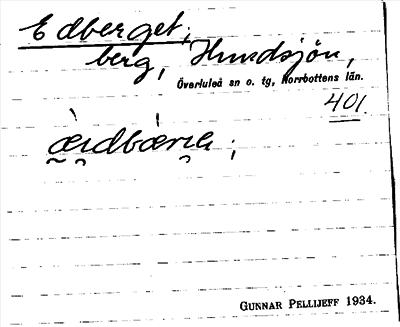 Edberget;
berg, Hundsjön,
Överluleå sn o. tg, Norrbottens län.
401.
GUNNAR PELLIJEFF 1934.